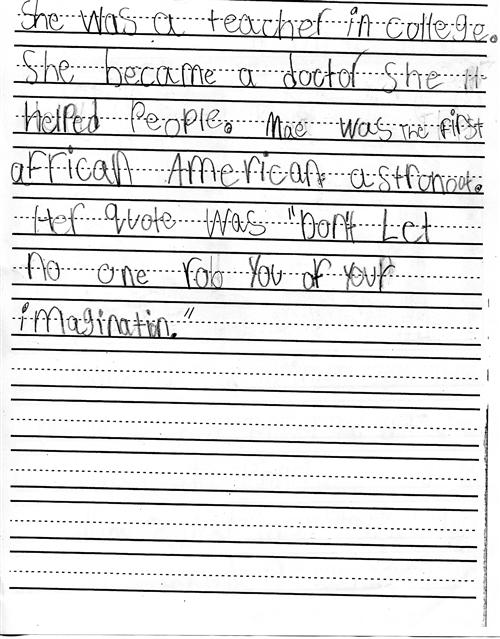 She was a teacher in college.
She became a doctor she
Helped People. Mae was the first
african American astronout.
Her quote was "Don't Let
no one rob You of Your
imaginatin."